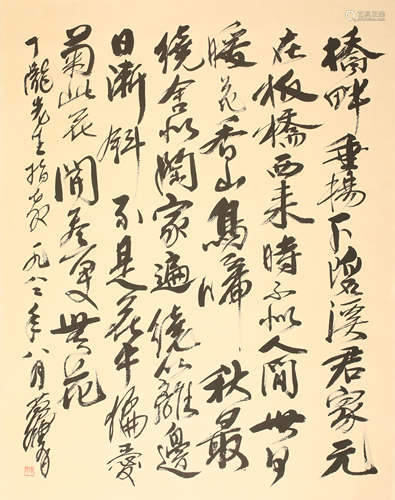 橋畔垂揚下碧溪君家元
在板橋西来時不似人間世日
暖花香山鳥啼 秋叢
繞舍似陶家遍繞籬邊
日漸斜 不是花中偏愛
菊此花開尽更無花
先生指教 一九八二年八月